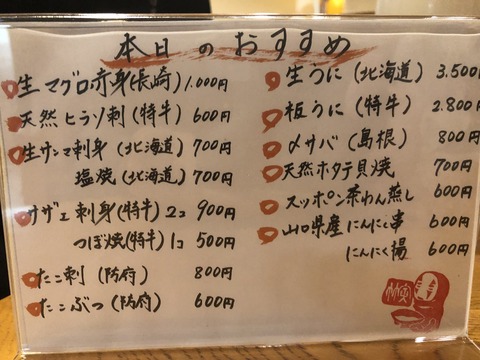 本日のおすすめ
生マグロ赤身(長崎) 1.000円
天然ヒラソ刺(特牛) 600円
生サンマ刺身(北海道) 700円
塩焼(北海道) 700円
サザエ刺身(特牛) 2コ 900円
つぼ焼(特牛) 1コ 500円
たこ刺(防府) 800円
たこぶつ(防府) 600円
生うに(北海道) 3.500円
板うに(特牛) 2.800円
〆サバ(島根) 800円
天然ホタテ貝焼 700円
スッポン茶わん蒸し 600円
山口県産にんにく串 600円
にんにく揚 600円